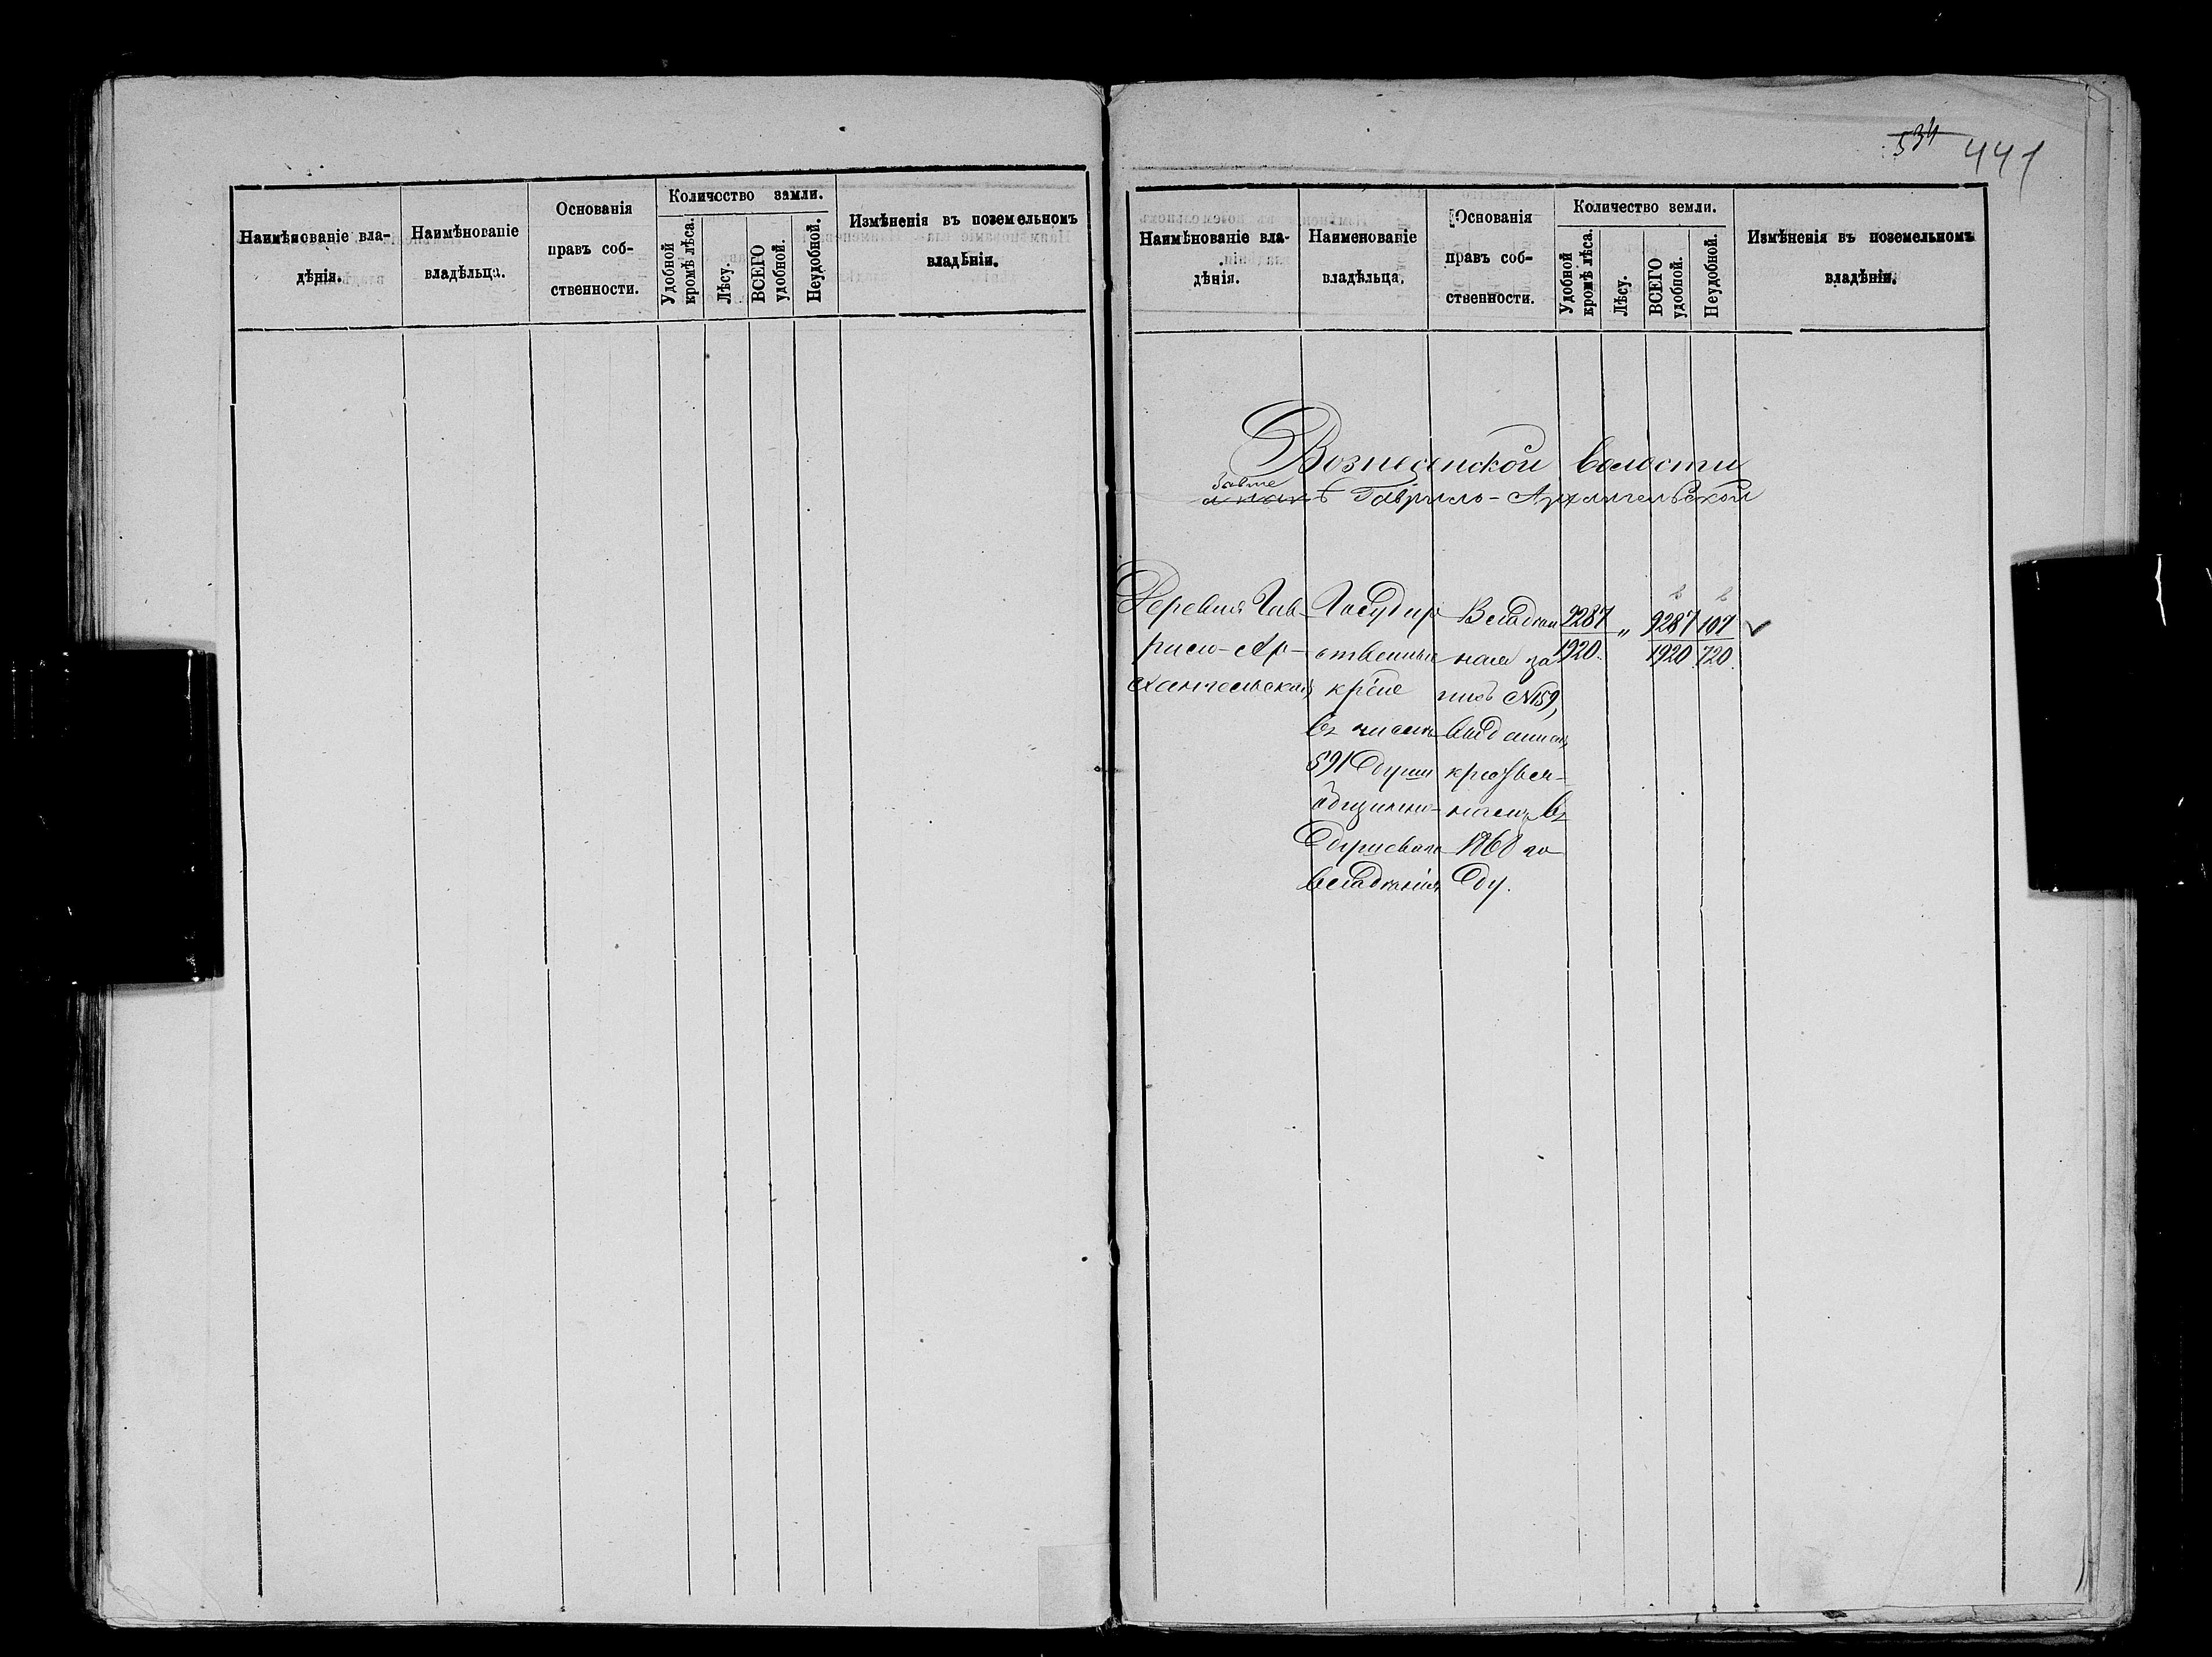 Наимѣнованіе вла-
дѣнія.
Наимѣнованіе
владѣльца.
Основанія
правъ соб-
ственности.
Количество замли.
Удобной
кромѣ лѣса.
Лѣсу.
ВСЕГО
удобной.
Неудобной.
Измѣненія въ поземельномъ
владѣніи.
534 441
Наимѣнованіе вла-
дѣнія.
Наименованіе
владѣльца.
Основанія
правъ соб-
ственности.
Количество земли.
Удобной
кромѣ лѣса.
Лѣсу.
ВСЕГО
удобной.
Неудобной.
Измѣненія въ поземельномъ
владѣніи.
Вознесенской волости
Гаврило-Архангельской
Деревня Гав-
рило-Ар-
хангельская
Государ
ственные
кр-не
въ числѣ
591 души
общинно-
душеваго
владѣнія
Владѣн
ная за
пись №159,
выданная
крестья-
намъ въ
1868 го
ду.
9287
1920.
"
9287
1920
107
720.